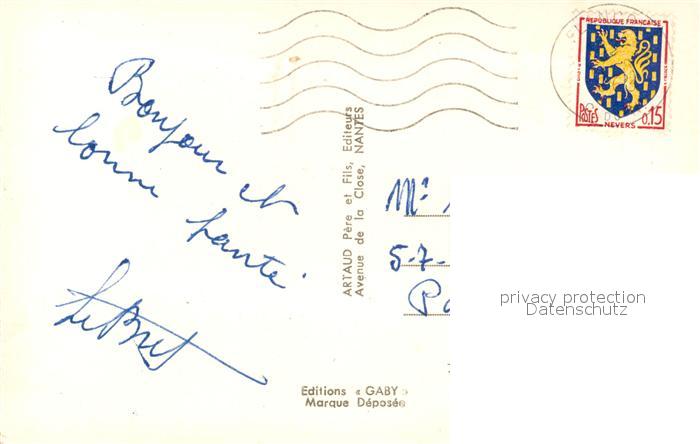 Bonjour et
bonne santé
Le Bret
ARTAUD Père et Fils, Editeurs
Avenue de la Close, NANTES
Editions « GABY »
Marque Déposée
REPUBLIQUE FRANÇAISE
POSTES
0,15
NEVERS
Mr
5-7-
Pa
privacy protection
Datenschutz